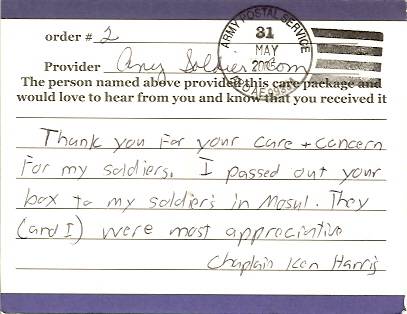 order # 2
ARMY POSTAL SERVICE
31
MAY
Provider Any Soldier .com
The person named above provided this care package and
would love to hear from you and know that you received it
Thank you For your care + concern
For my soldiers. I passed out your
box to my soldiers in Mosul. They
(and I) were most appreciative
Chaplain Ken Harris